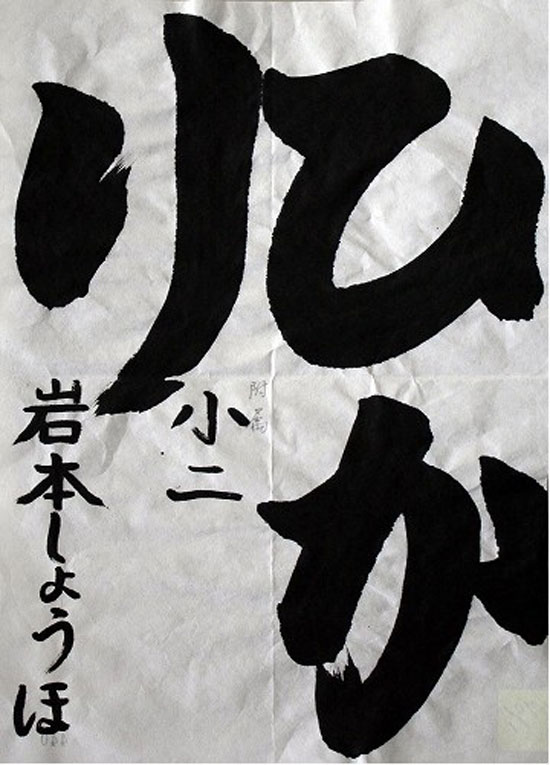 ひか
り
小二
岩本しょうほ
附属